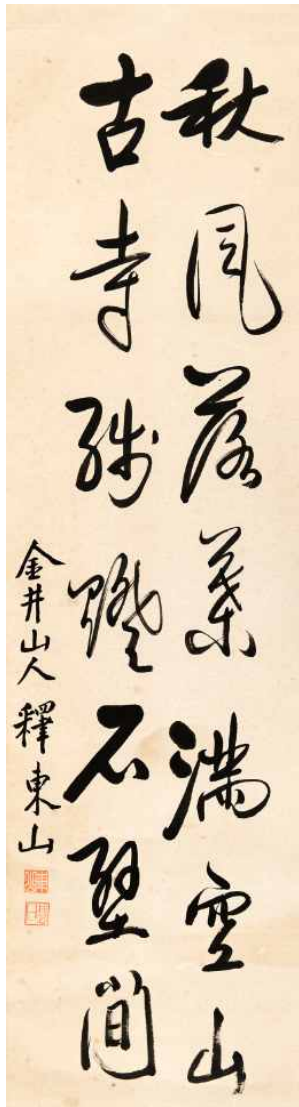 秋風落葉滿空山
古寺殘燈石壁間
金井山人 釋東山